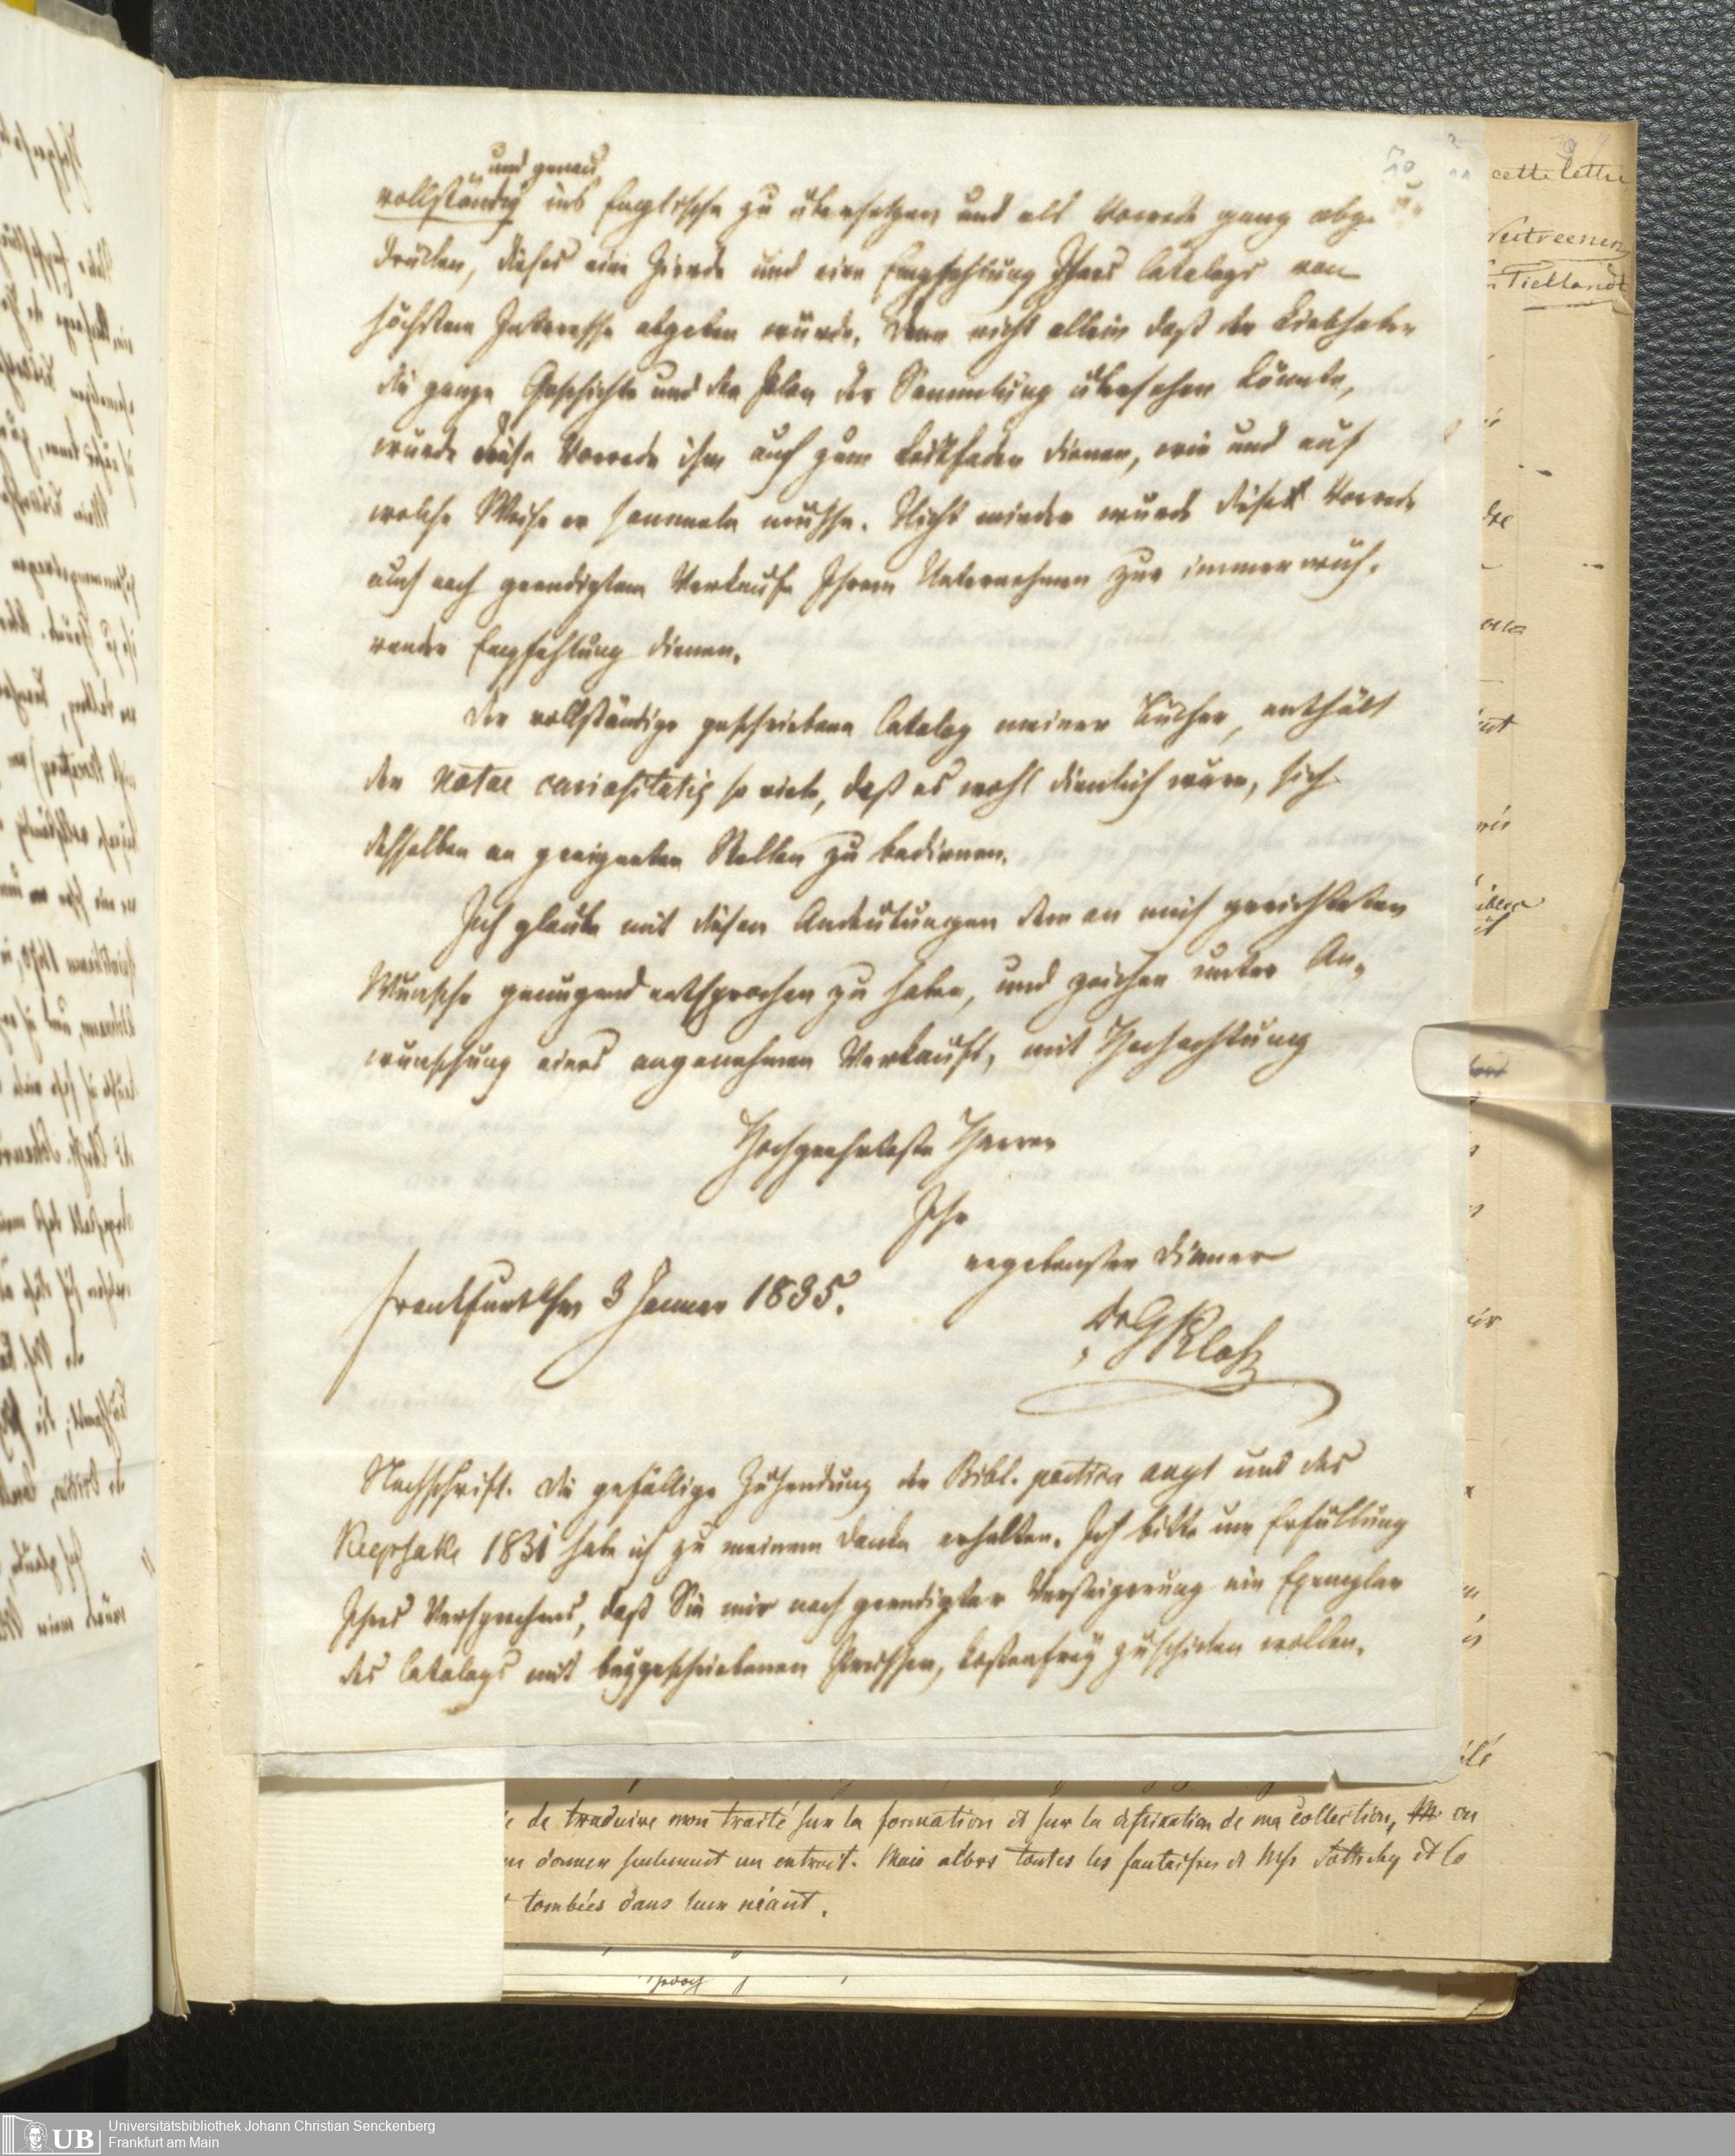 und genau
vollständig ins Englische zu übersetzen und als Vorrede ganz abzu
drucken, dieses eine Zierde und eine Empfehlung Ihres Catalogs von
höchstem Interesse abgeben würde. Denn nicht allein daß der Liebhaber
die ganze Geschichte und den Plan der Sammlung übersehen könnte,
wurde diese Vorrede ihm auch zum Leitfaden dienen, wie und auf
welche Weise er sammeln müsse. Nicht minder wurde diese Vorrede
auch nach geendigtem Verkaufe Ihrem Unternehmen zur immerwäh-
renden Empfehlung dienen.
Der vollständige geschriebene Catalog meiner Bücher, enthält
der Notae curiositatis so viele, daß es wohl dienlich wäre, sich
desselben an geeigneten Stellen zu bedienen.
Ich glaube mit diesen Andeutungen dem an mich gerichteten
Wunsche genugend entsprochen zu haben, und zeichne unter An-
wunschung eines angenehmen Verkaufs, mit Hochachtung
Hochgeehrteste Herren
Ihr
ergebenster Diener
Frankfurt 3 Januar 1835.
Dr G Kloß
Nachschrift. Die gefällige Zusendung der Bibl. poetica angl und des
Keepsake 1831 habe ich zu meinem Danke erhalten. Ich bitte um Erfüllung
Ihres Versprechens, daß Sie mir nach geendigter Versteigerung ein Exemplar
des Catalogs mit beygeschriebenen Preissen, kostenfrey zuschicken wollen.
cette lettre
Tielland
de traduire mon traité sur la formation et sur la destination de ma collection, on
donner seulement un extrait. Mais alors toutes les fantaisies de Mss Sotheby et Co
tombées dans leur néant.
UB
Universitätsbibliothek Johann Christian Senckenberg
Frankfurt am Main